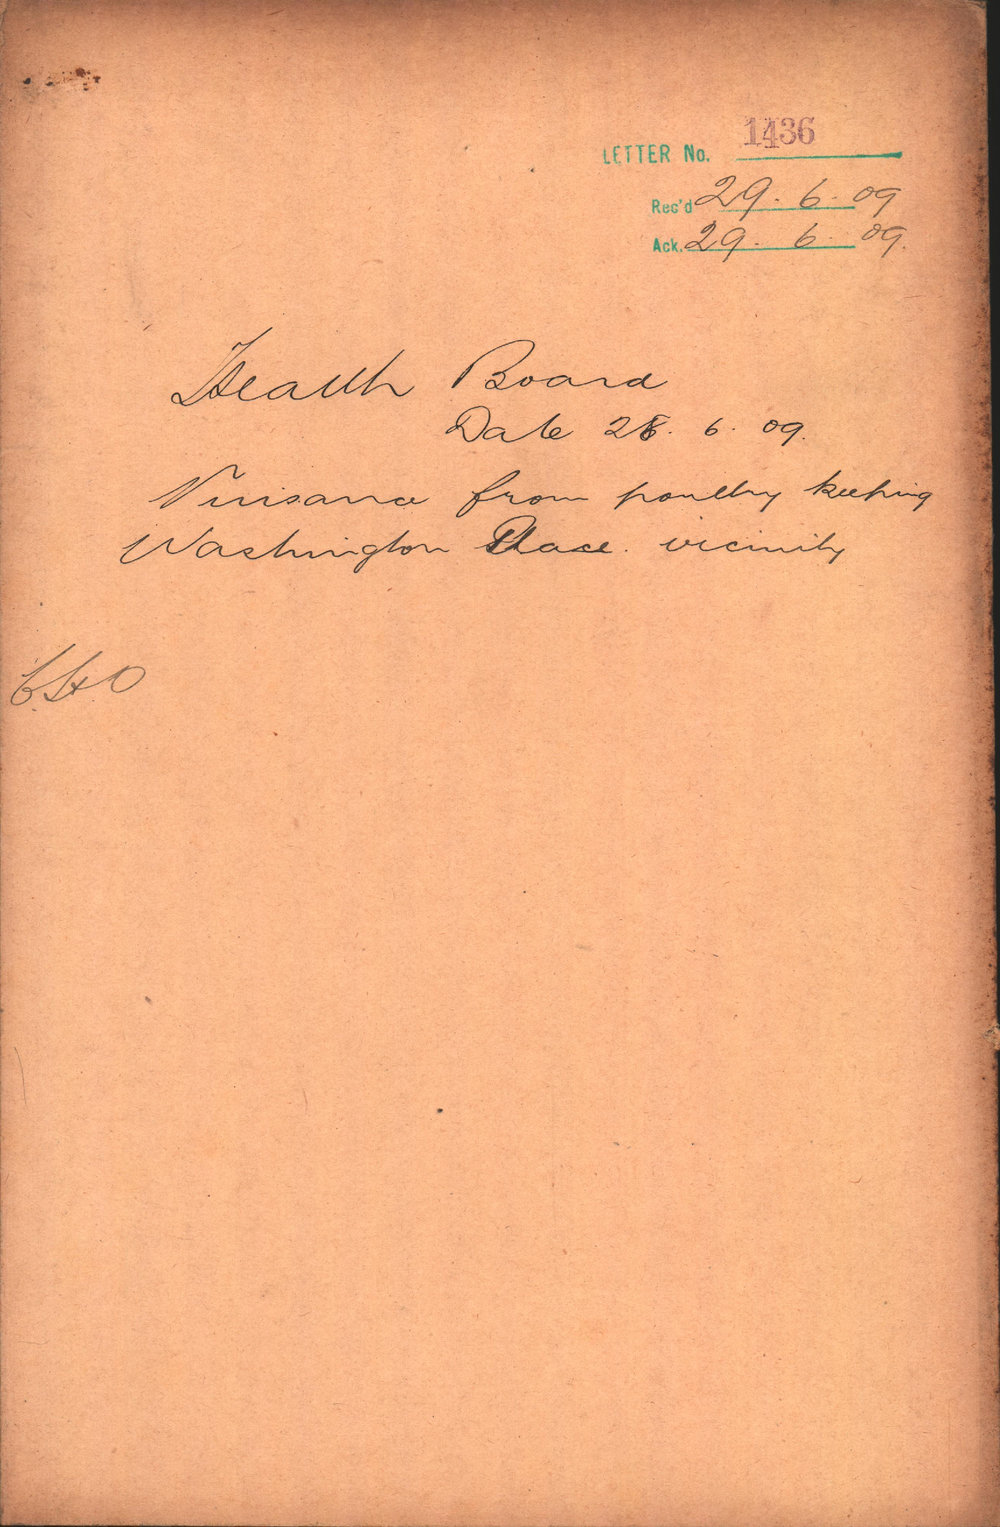 LETTER No. 1436
Rec'd 29. 6. 09
Ack. 29. 6. 09.
Health Board
Date 28. 6. 09.
Nuisance from poultry keeping
Washington Place vicinity
C.H.O